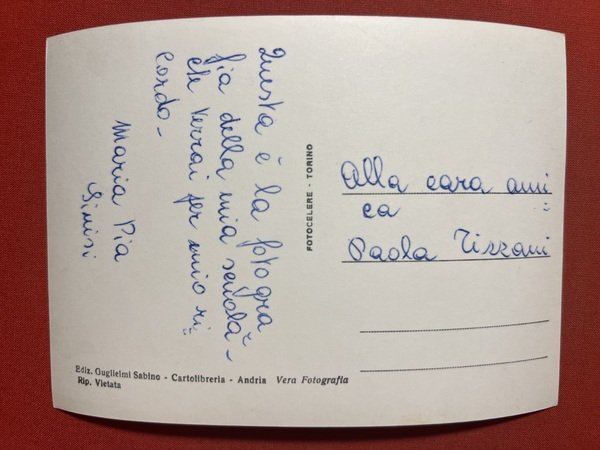 Questa è la fotogra
fia della mia scuola -
che terrai per mio ri=
cordo -
Maria Pia
Sinisi
FOTOCELERE - TORINO
Alla cara ami
=
ca
Paola Tizzani
Ediz. Guglielmi Sabino - Cartolibreria - Andria Vera Fotografia
Rip. Vietata